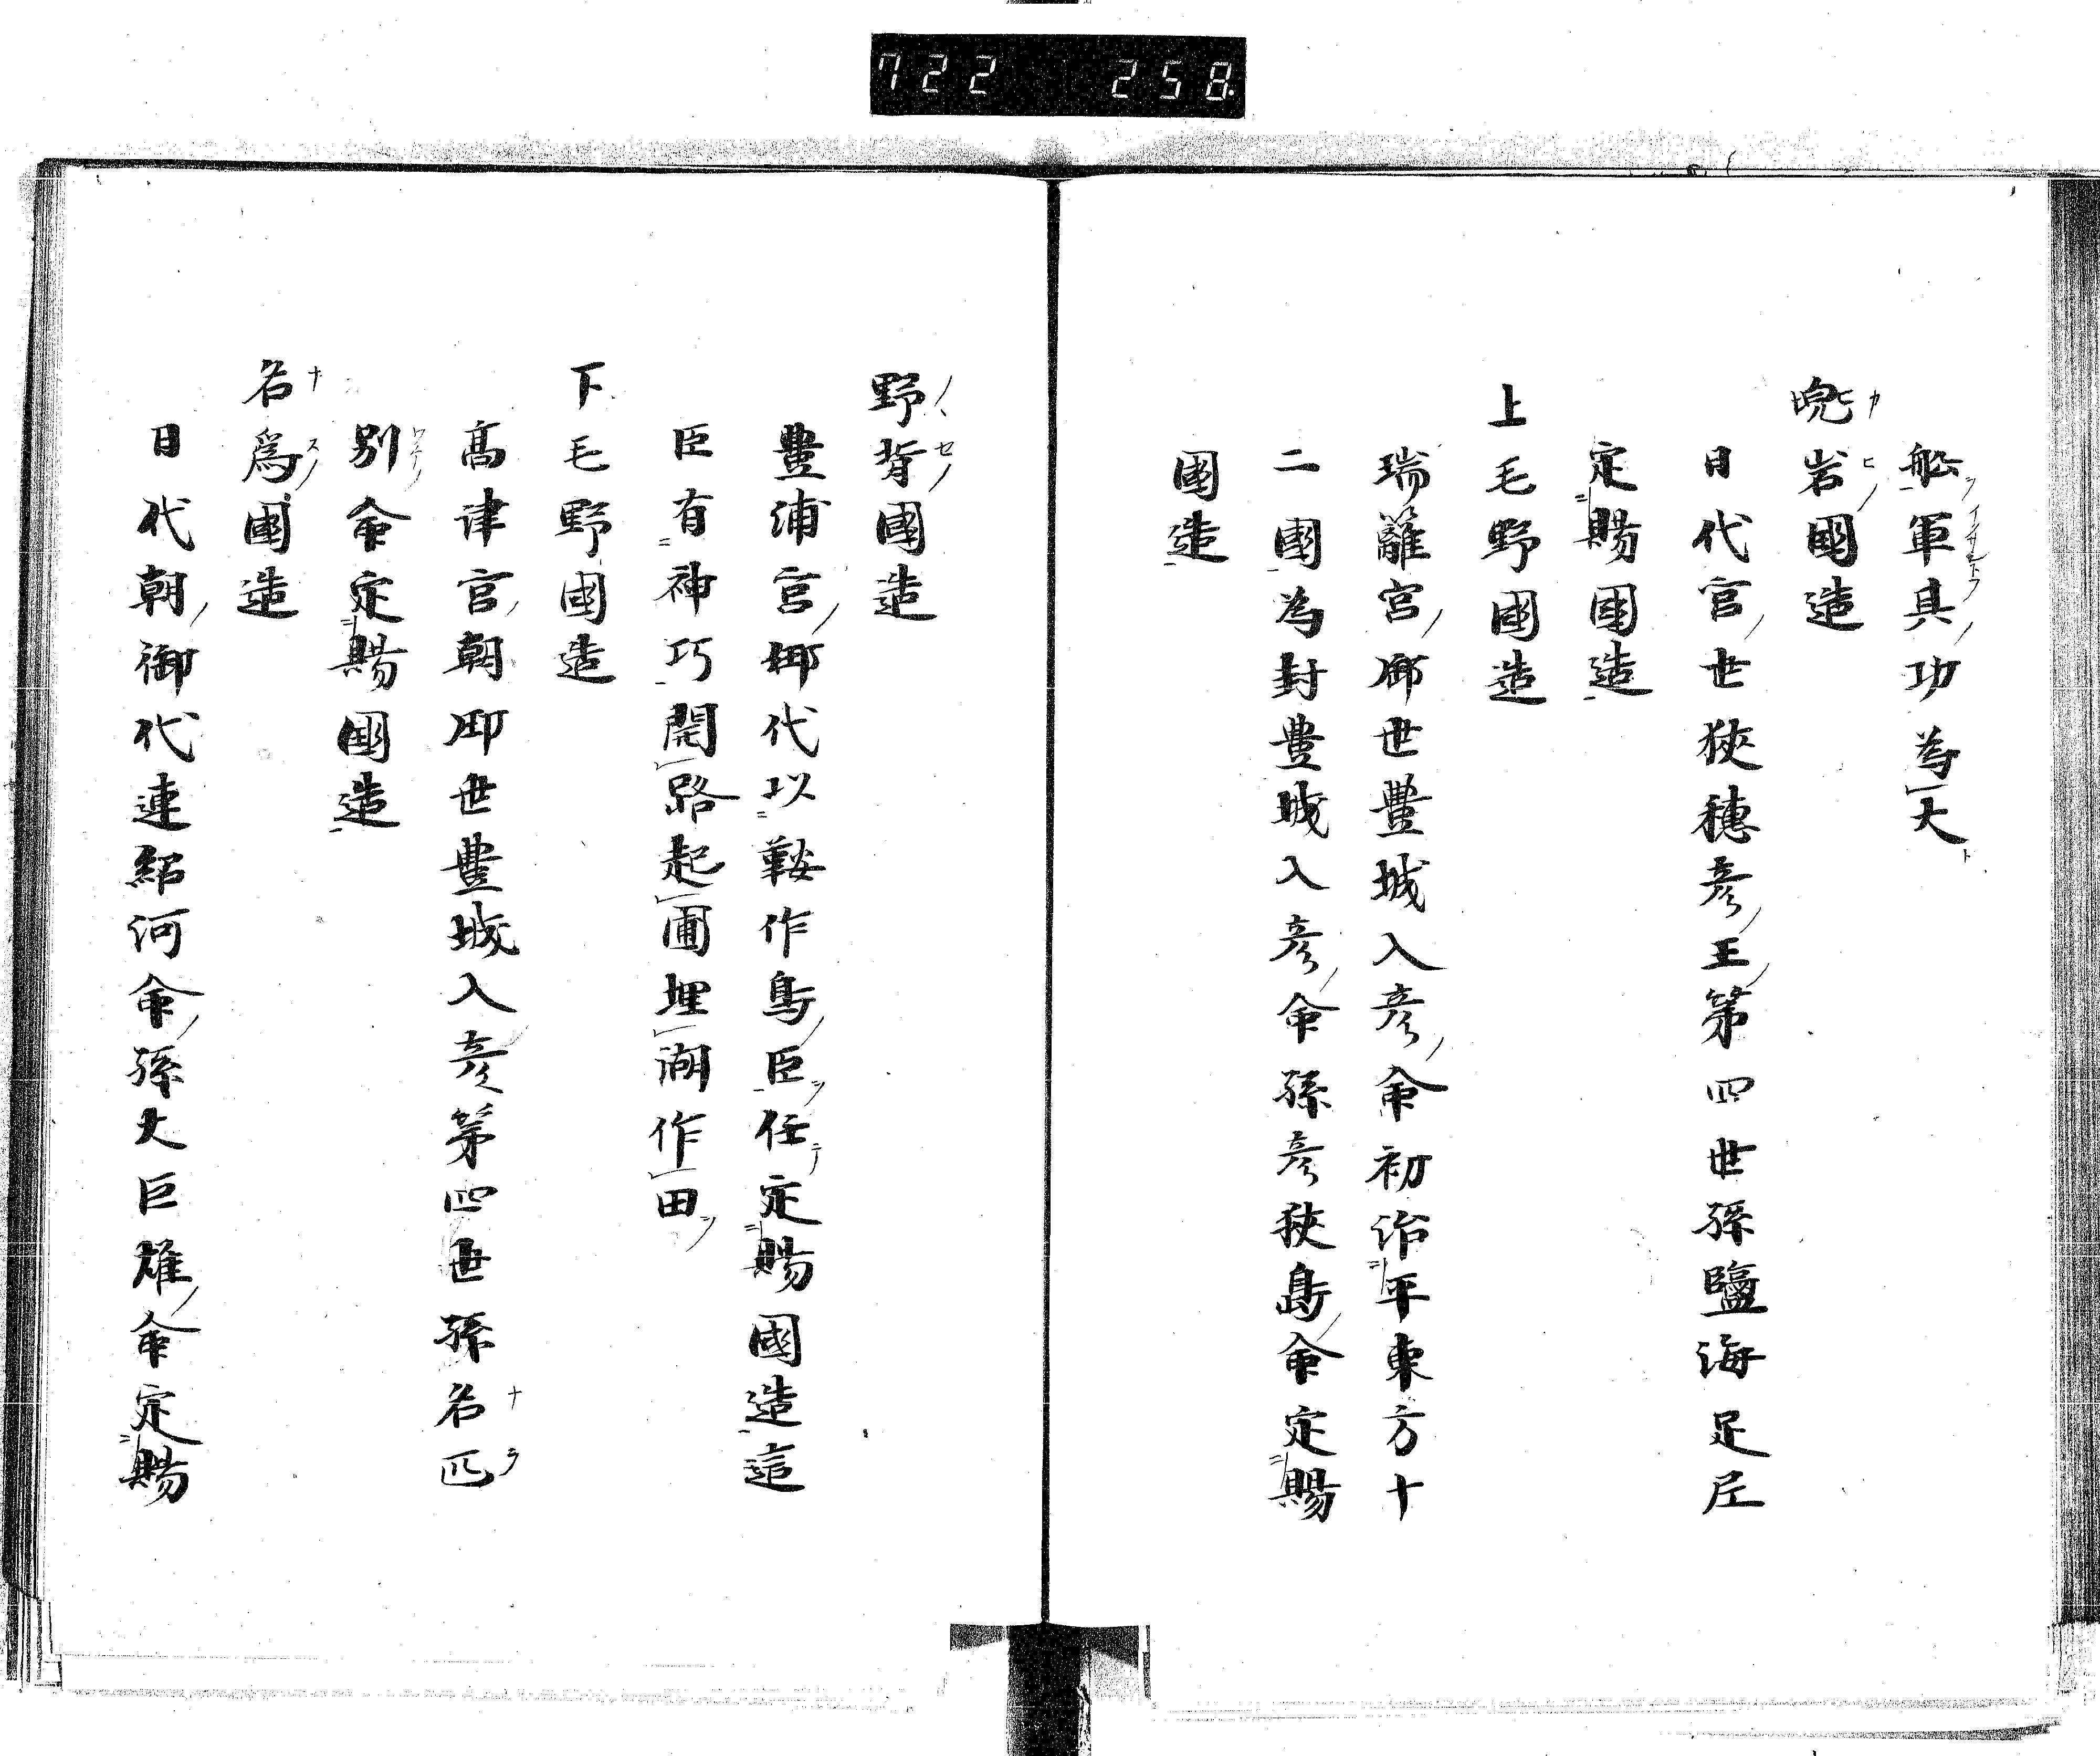 722 258.
船軍具功為大
岩國造
日代官世狹穗彦王第四世孫鹽海足尼
定賜國造
上毛野國造
瑞籬宮御世豐城入彦命初治平東方十
二國為封豐城入彦命孫彦狹島命定賜
國造
野背國造
豐浦宮御代以鞍作鳥臣任定賜國造這
臣有神巧開路起圃埋湖作田
下毛野國造
髙津宮朝御世豐城入彦第四世孫名匹
別命定賜國造
名爲國造
日代朝御代連紹河命孫大巨雄命定賜